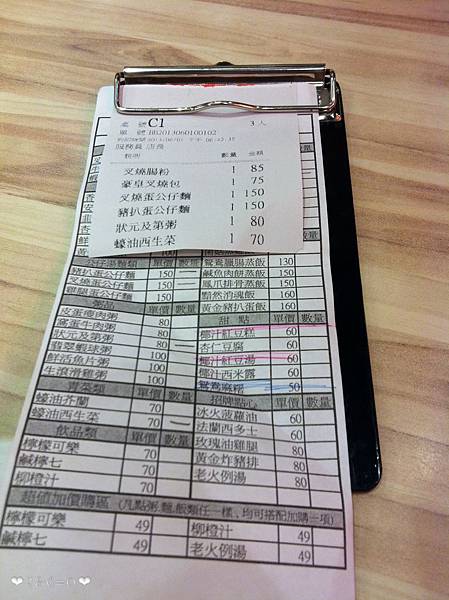 桌號 C1 3人
單號 BB2013060100102
服務員 店長
數量 金額
叉燒腸粉 1 85
豪皇叉燒包 1 75
叉燒蛋公仔麵 1 150
豬扒蛋公仔麵 1 150
狀元及第粥 1 80
蠔油西生菜 1 70
公仔湯麵類 單價 數量
豬扒蛋公仔麵 150
叉燒蛋公仔麵 150
雞腿蛋公仔麵 150
粥品 單價 數量
皮蛋瘦肉粥 80
窩蛋牛肉粥 80
狀元及第粥 80
翡翠蝦球粥 100
鮮活魚片粥 100
生滾滑雞粥 100
青菜類 單價 數量
蠔油芥蘭 70
蠔油西生菜 70
飲品類 單價 數量
檸檬可樂 70
鹹檸七 70
柳橙汁 70
鴛鴦臘腸蒸飯 130
鹹魚肉餅蒸飯 160
鳳爪排骨蒸飯 160
黯然消魂飯 160
黃金豬扒蛋飯 160
甜點 單價 數量
椰汁紅豆糕 60
杏仁豆腐 60
椰汁紅豆湯 60
椰汁西米露 60
鴛鴦麻糬 50
招牌點心 單價 數量
冰火菠蘿油 60
法蘭西多士 60
玫瑰油雞腿 80
黃金炸豬排 80
老火例湯 80
超值加價購區 (凡點粥.麵.飯類任一樣、均可搭配加購一項)
檸檬可樂 49 柳橙汁 49
鹹檸七 49 老火例湯 49